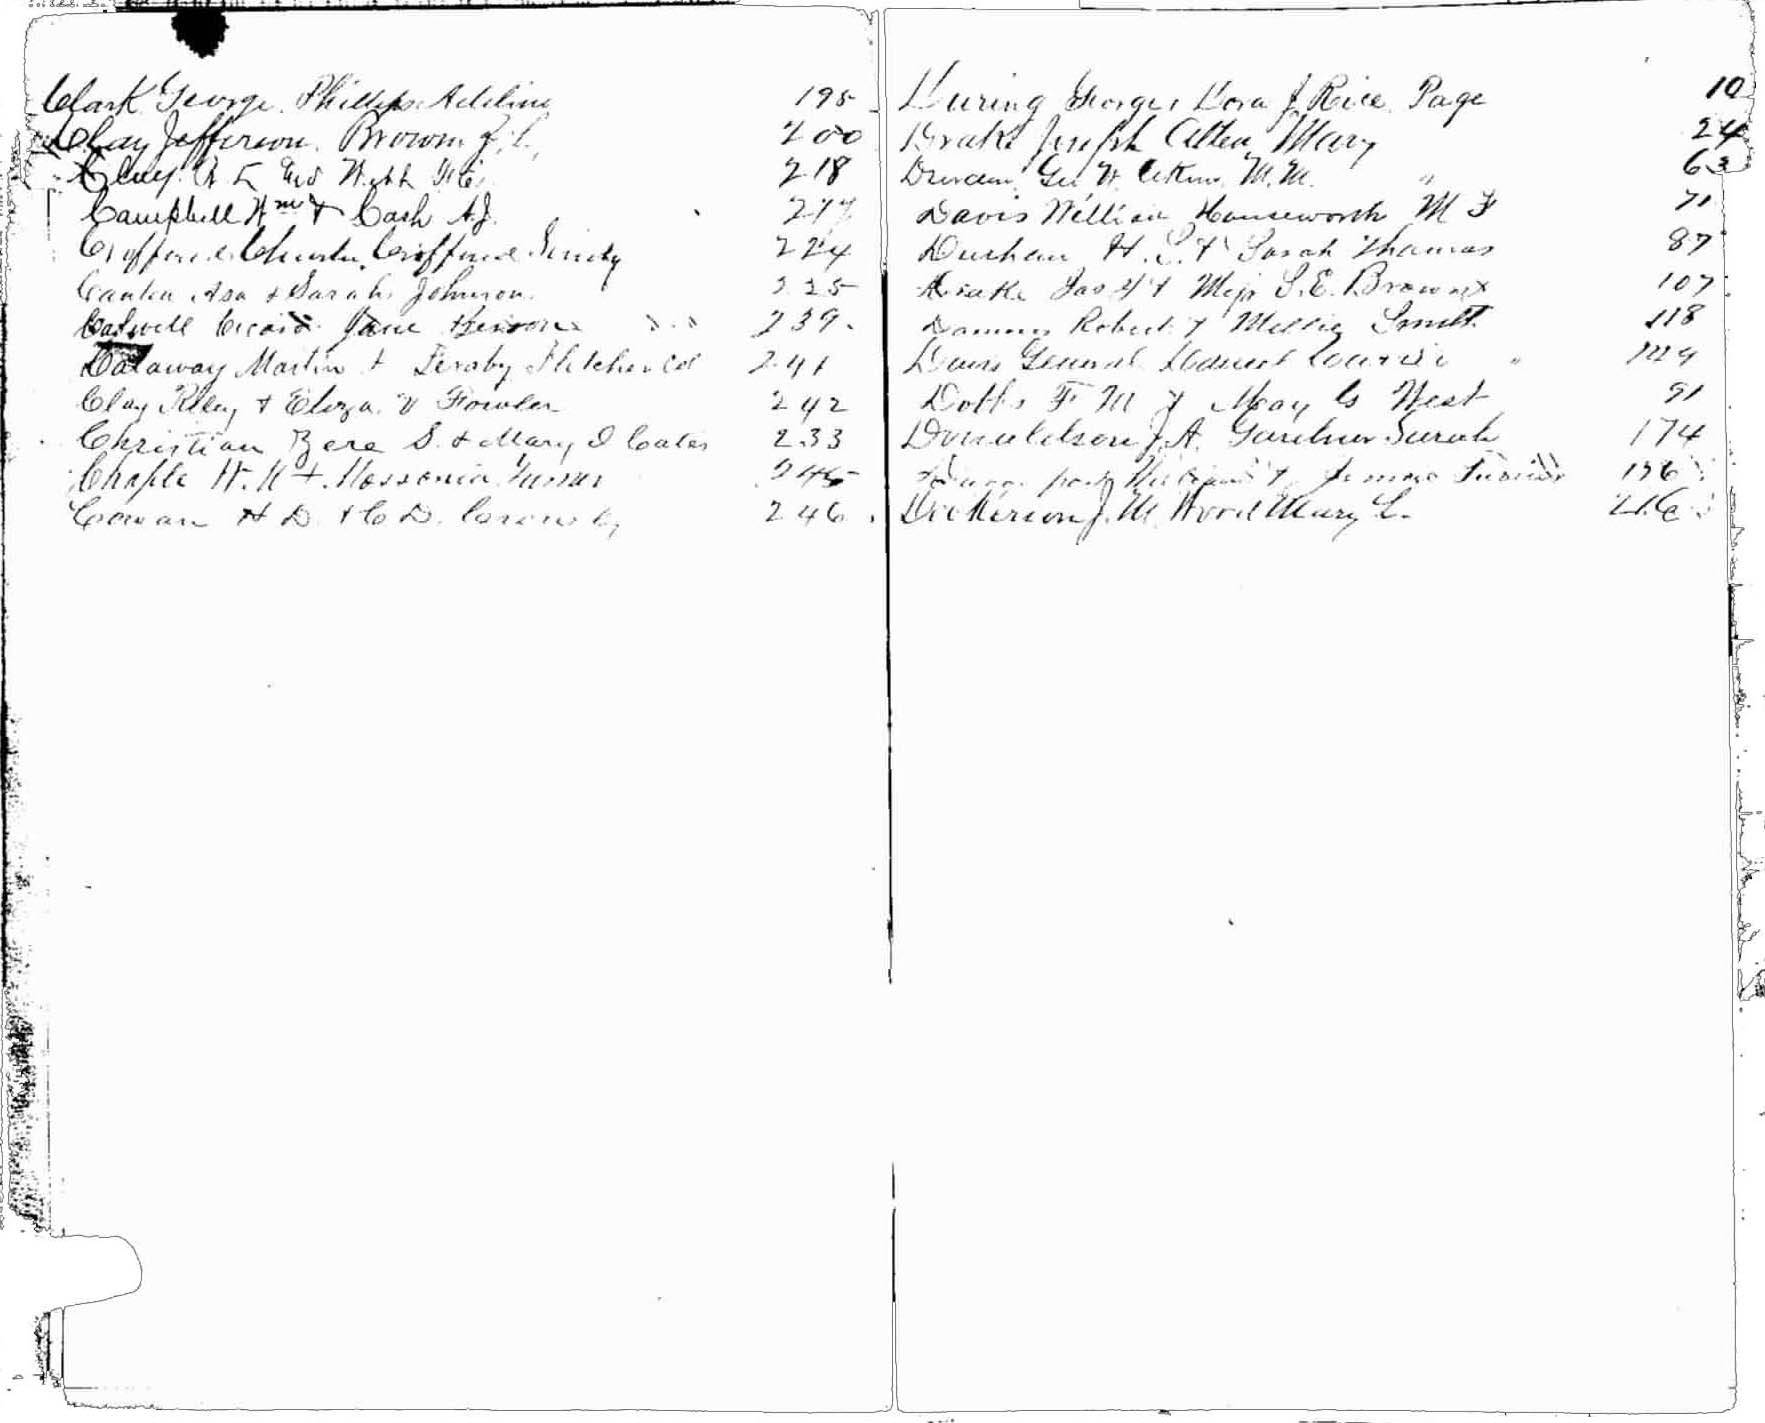 Clark George Phillips Adeline 195
Clay Jefferson Brown J. C. 200
Clay 218
Campbell Wm & Cash A.J. 217
Crofford Charles Crofford Sindy 224
Canten Asa & Sarah Johnson 225
Calwell Jane Henson 239
Calaway Martin & Feraby Fletcher Col 241
Clay Riley & Eliza V Fowler 242
Christian Zera S. & Mary I Cates 233
Chaple W. M & Mossonia Turner 245
Cowan H D. & C D. 246
During George, Dora J. Rice Page 10
Drake Joseph Allen Mary 24
Geo W. M.M. " 63
Davis William Houseworth M F 71
Durham H. S. & Sarah Thomas 87
Drake Jas & Miss S. E. Brown 107
Robert & Mellie Smith 118
Davis General Harriet " 129
Dobbs F M & May G West 91
Donaldson J. A. Gardner Sarah 174
196
Dickerson J. M. Word Mary L. 216